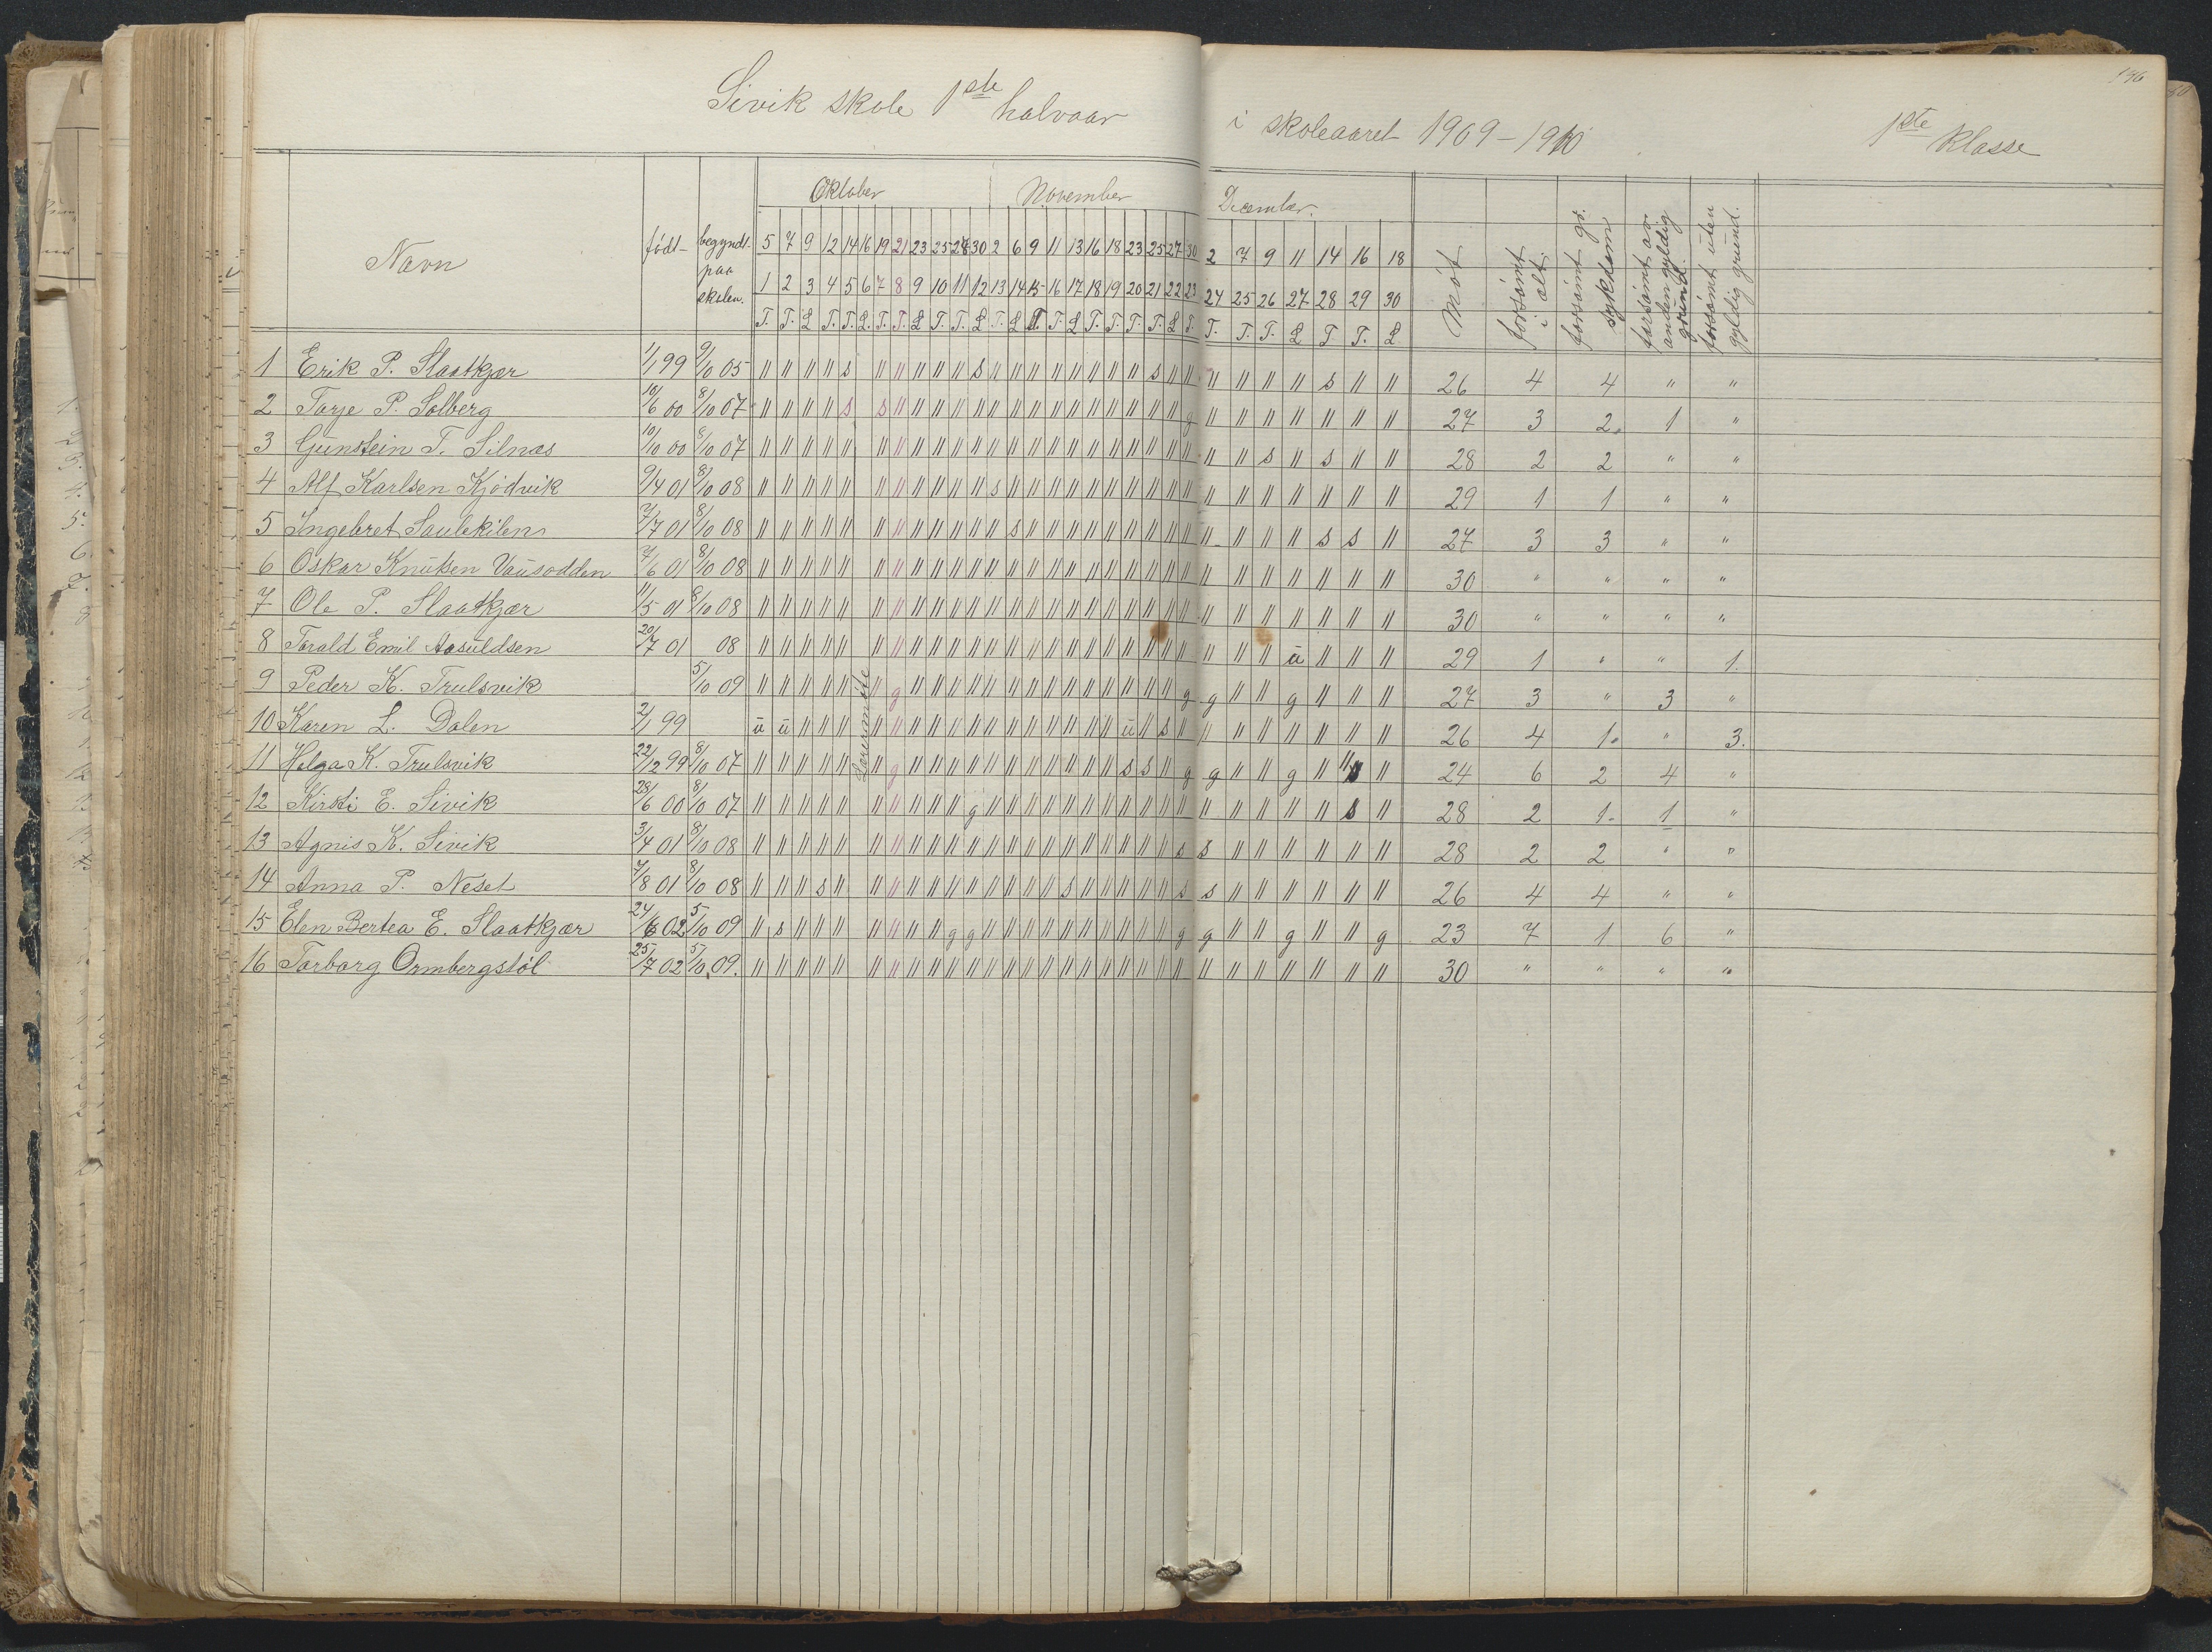 Sivik skole 1ste halvaar i skoleaaret 1909-1910 1ste klasse
146
Navn födt begyndt paa skolen. Oktober November December. Möt forsömt i alt. forsömt gr. sykdom forsömt av anden gyldig grund. forsömt uten gyldig grund.
5 7 9 12 14 16 19 21 23 25 28 30 2 6 9 11 13 16 18 23 25 27 30 2 7 9 11 14 16 18
1 2 3 4 5 6 7 8 9 10 11 12 13 14 15 16 17 18 19 20 21 22 23 24 25 26 27 28 29 30
T. T. L T. T. L. T. T. L T. T. L T. L T T. L T. T. T. T. L T. T. T. T. L T T. L
1 Erik P. Slaatkjær 1/1 99 9/10 05 " " " " s " " " " " s " " " " " " " " s " " " " " " s " " 26 4 4 " "
2 Torje P. Solberg 10/6 00 8/10 07 " " " " s s " " " " " " " " " " " " " " " g " " " " " " " 27 3 2 1 "
3 Gunstein T. Silnæs 10/10 00 8/10 07 " " " " " " " " " " " " " " " " " " " " " " " " s " s " " 28 2 2 " "
4 Alf Karlsen Kjödvik 9/4 01 8/10 08 " " " " " " " " " " " s " " " " " " " " " " " " " " " " " 29 1 1 " "
5 Ingebret Saulekilen 7/7 01 8/10 08 " " " " " " " " " " " " s " " " " " " " " " " " " " s s " 27 3 3 " "
6 Oskar Knutsen Vausodden 7/6 01 8/10 08 " " " " " " " " " " " " " " " " " " " " " " " " " " " " " 30 " " " "
7 Ole P. Slaatkjær 11/5 01 8/10 08 " " " " " " " " " " " " " " " " " " " " " " " " " " " " " 30 " " " "
8 Torald Emil Aasuldsen 20/7 01 08 " " " " " " " " " " " " " " " " " " " " " " " " " u " " " 29 1 " " 1.
9 Peder K. Trulsvik 5/10 09 " " " " " " g " " " " " " " " " " " " " " g g " " g " " " 27 3 " 3 "
Lærermöte
10 Karen L. Dalen 2/1 99 u u " " " " " " " " " " " " " " " " u " s " " " " " " " " 26 4 1. " 3.
11 Helga K. Trulsvik 22/12 99 8/10 07 " " " " " " g " " " " " " " " " " " s s " g g " " g " " s " 24 6 2 4 "
12 Kirsti E. Sivik 28/6 00 8/10 07 " " " " " " " " " " g " " " " " " " " " " " " " " " " s " 28 2 1. 1 "
13 Agnis K. Sivik 3/4 01 8/10 08 " " " " " " " " " " " " " " " " " " " " " s s " " " " " " 28 2 2 " "
14 Anna P. Neset 7/8 01 8/10 08 " " " s " " " " " " " " " " " s " " " " " s s " " " " " " 26 4 4 " "
15 Elen Bertea E. Slaatkjær 24/6 02 5/10 09 " s " " " " " " " g g " " " " " " " " " " g g " " g " " g 23 7 1 6 "
16 Torborg Ormbergstöl 25/7 02 5/10 09. " " " " " " " " " " " " " " " " " " " " " " " " " " " " " 30 " " " "